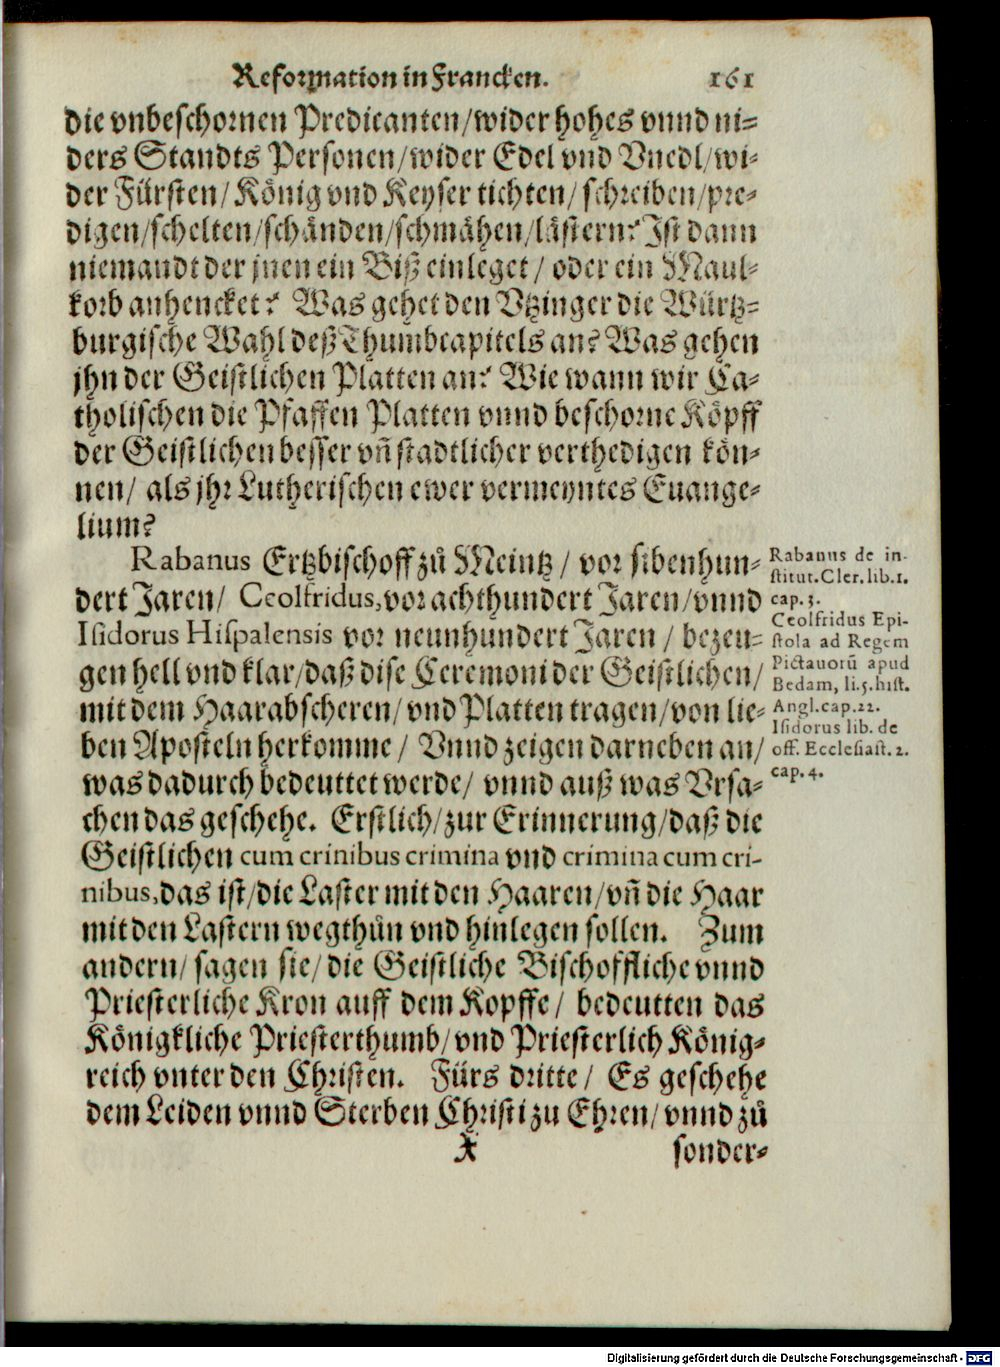 Reformation in Francken. 161
die vnbeschornen Predicanten/wider hohes vnnd ni-
ders Standts Personen/wider Edel vnd Vnedl/wi-
der Fürsten/ König vnd Keyser tichten/ schreiben/pre-
digen/schelten/schänden/schmähen/lästern? Ist dann
niemandt der jnen ein Biß einleget/ oder ein Maul-
korb anhencket? Was gehet den Vtzinger die Würtz-
burgische Wahl deß Thumbcapitels an? Was gehen
jhn der Geistlichen Platten an? Wie wann wir Ca-
tholischen die Pfaffen Platten vnnd beschorne Köpff
der Geistlichen besser vñ stadtlicher verthedigen kön-
nen/ als jhr Lutherischen ewer vermeyntes Euange-
lium?
Rabanus Ertzbischoff zů Meintz/ vor sibenhun-
dert Jaren/ Ceolfridus, vor achthundert Jaren/vnnd
Isidorus Hispalensis vor neunhundert Jaren/ bezeu-
gen hell vnd klar/daß dise Ceremoni der Geistlichen/
mit dem Haarabscheren/ vnd Platten tragen/von lie-
ben Aposteln herkomme/ Vnnd zeigen darneben an/
was dadurch bedeuttet werde/ vnnd auß was Vrsa-
chen das geschehe. Erstlich/zur Erinnerung/daß die
Geistlichen cum crinibus crimina vnd crimina cum cri-
nibus, das ist/die Laster mit den Haaren/vñ die Haar
mit den Lastern wegthůn vnd hinlegen sollen. Zum
andern/ sagen sie/ die Geistliche Bischoffliche vnnd
Priesterliche Kron auff dem Kopffe/ bedeutten das
Königkliche Priesterthumb/vnd Priesterlich König-
reich vnter den Christen. Fürs dritte/ Es geschehe
dem Leiden vnnd Sterben Christi zu Ehren/ vnnd zů
X sonder-
Rabanus de in-
stitut. Cler. lib. 1.
cap. 3.
Ceolfridus Epi-
stola ad Regem
Pictauorũ apud
Bedam, li. 5. hist.
Angl. cap. 22.
Isidorus lib. de
off. Ecclesiast. 2.
cap. 4.
Digitalisierung gefördert durch die Deutsche Forschungsgemeinschaft - DFG